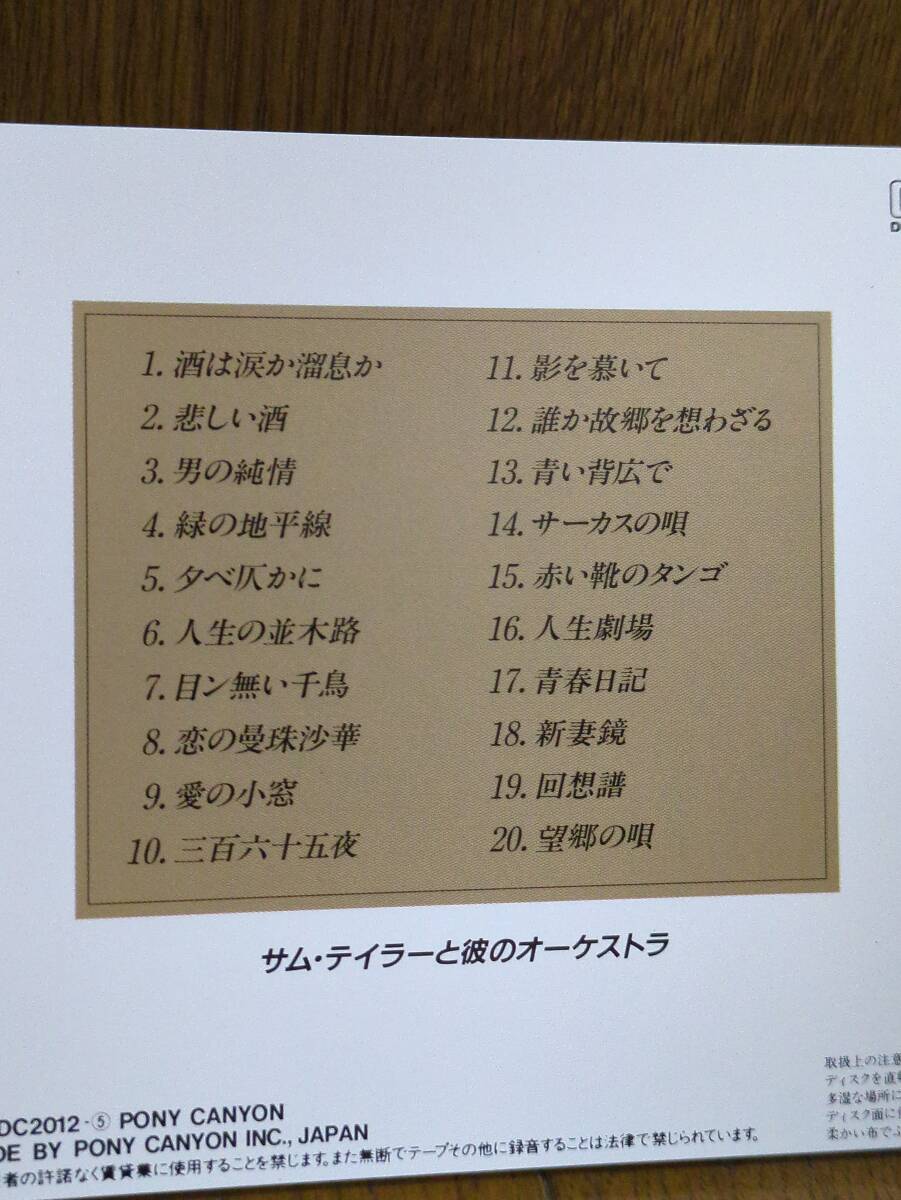 1. 酒は涙か溜息か
2. 悲しい酒
3. 男の純情
4. 緑の地平線
5. 夕べ仄かに
6. 人生の並木路
7. 目ン無い千鳥
8. 恋の曼珠沙華
9. 愛の小窓
10. 三百六十五夜
11. 影を慕いて
12. 誰か故郷を想わざる
13. 青い背広で
14. サーカスの唄
15. 赤い靴のタンゴ
16. 人生劇場
17. 青春日記
18. 新妻鏡
19. 回想譜
20. 望郷の唄
サム・テイラーと彼のオーケストラ
DC2012-⑤ PONY CANYON
DE BY PONY CANYON INC., JAPAN
者の許諾なく賃貸業に使用することを禁じます。また無断でテープその他に録音することは法律で禁じられています。
取扱上の注意
ディスクを直射
多湿な場所に
ディスク面に
柔かい布で